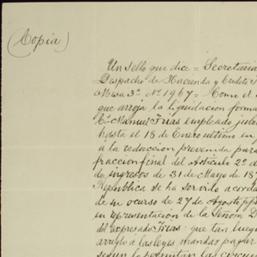 (Copia)
Un sello que dice = Secretaría
Despacho de Hacienda y Crédito
Mesa 3ª Nº 1967 = Como el
que arroja la liquidacion forma
C. Manuel Frias empleado jubi
hasta el 18 de Enero ultimo en
a la reduccion prevenida para
fraccion final del Articulo 2º d
de ingresos de 31 de Mayo de 18
República se ha servido acord
de su ocurso de 27 de Agosto pp
en representacion de la Señora D
del expresado Frias, que tan luego
arreglo a las leyes mandar pagar
segun lo permitan las circun